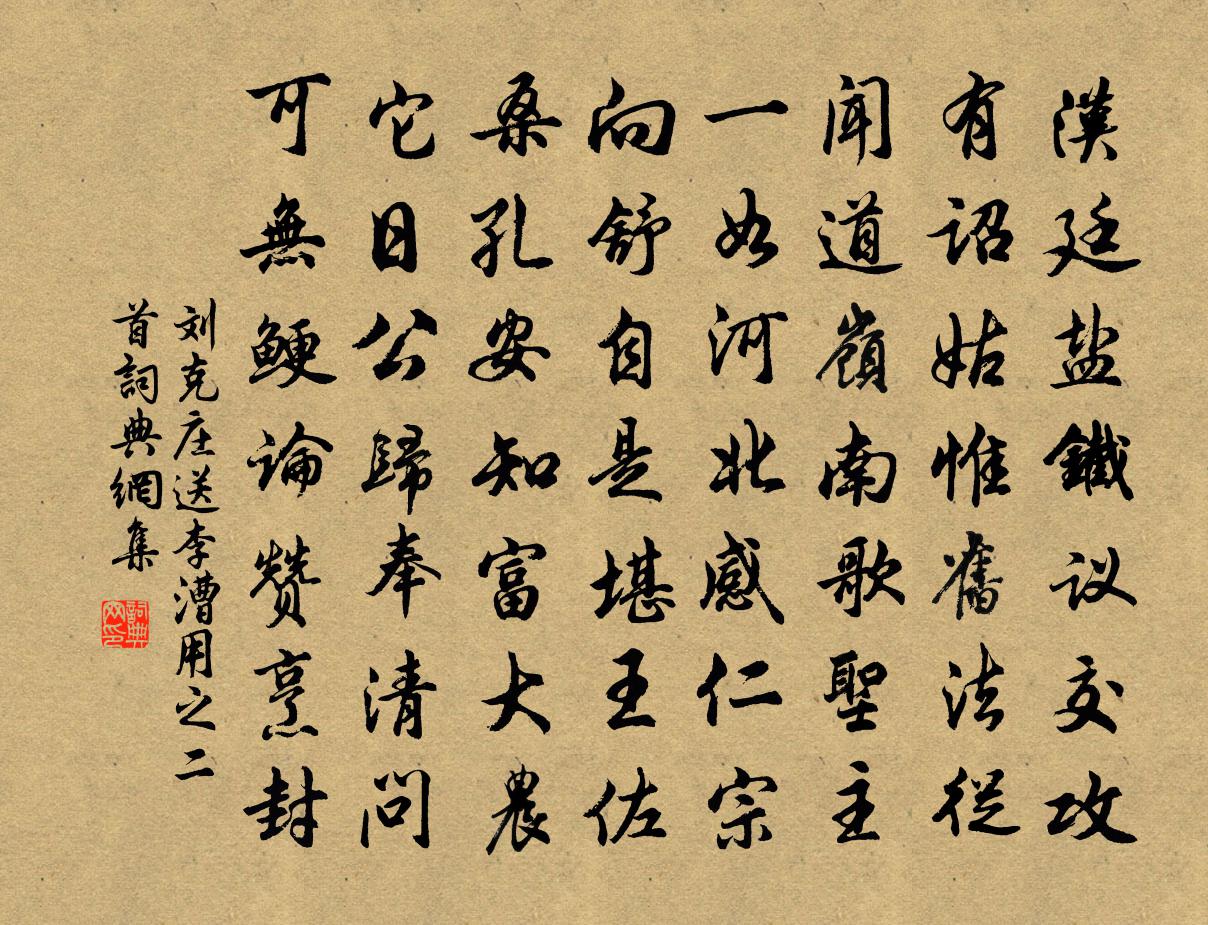 漢廷盐鐵议交攻
有詔姑惟舊法從
聞道嶺南歌聖主
一如河北感仁宗
向舒自是堪王佐
桑孔安知富大農
它日公歸奉清問
可無鯁論赞烹封
刘克庄送李漕用之二
首詞典網集
詞典网印